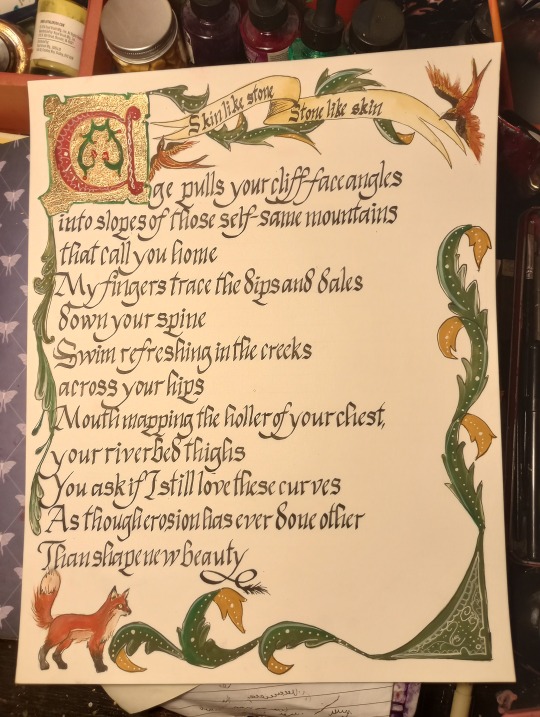 Skin like stone Stone like skin
Age pulls your cliff-face angles
into slopes of those self-same mountains
that call you home
My fingers trace the dips and dales
down your spine
Swim refreshing in the creeks
across your hips
Mouth mapping the holler of your chest,
your riverbed thighs
You ask if I still love these curves
As though erosion has ever done other
Than shape new beauty